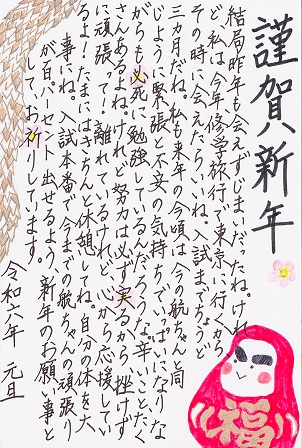 謹賀新年
結局昨年も会えずじまいだったね。けれ
ど、私は今年修学旅行で東京に行くから
その時に会えたらいいね。入試まではちょうど
三ヵ月だね。私も来年の今頃は今の航ちゃんと同
じように緊張と不安の気持ちでいっぱいになりな
がらも必死に勉強しているんだろうな。辛いことだく
さんあるよね。けれど努力は必ず実るから、挫けず
に頑張って！離れているけれど心から応援してい
るよ！たまにはきちんと休憩してね。自分の体を大
事にね。入試本番で今までの航ちゃんの頑張り
が百パーセント出せるよう、新年のお願い事と
して、お祈りしています。
令和六年 元旦
福